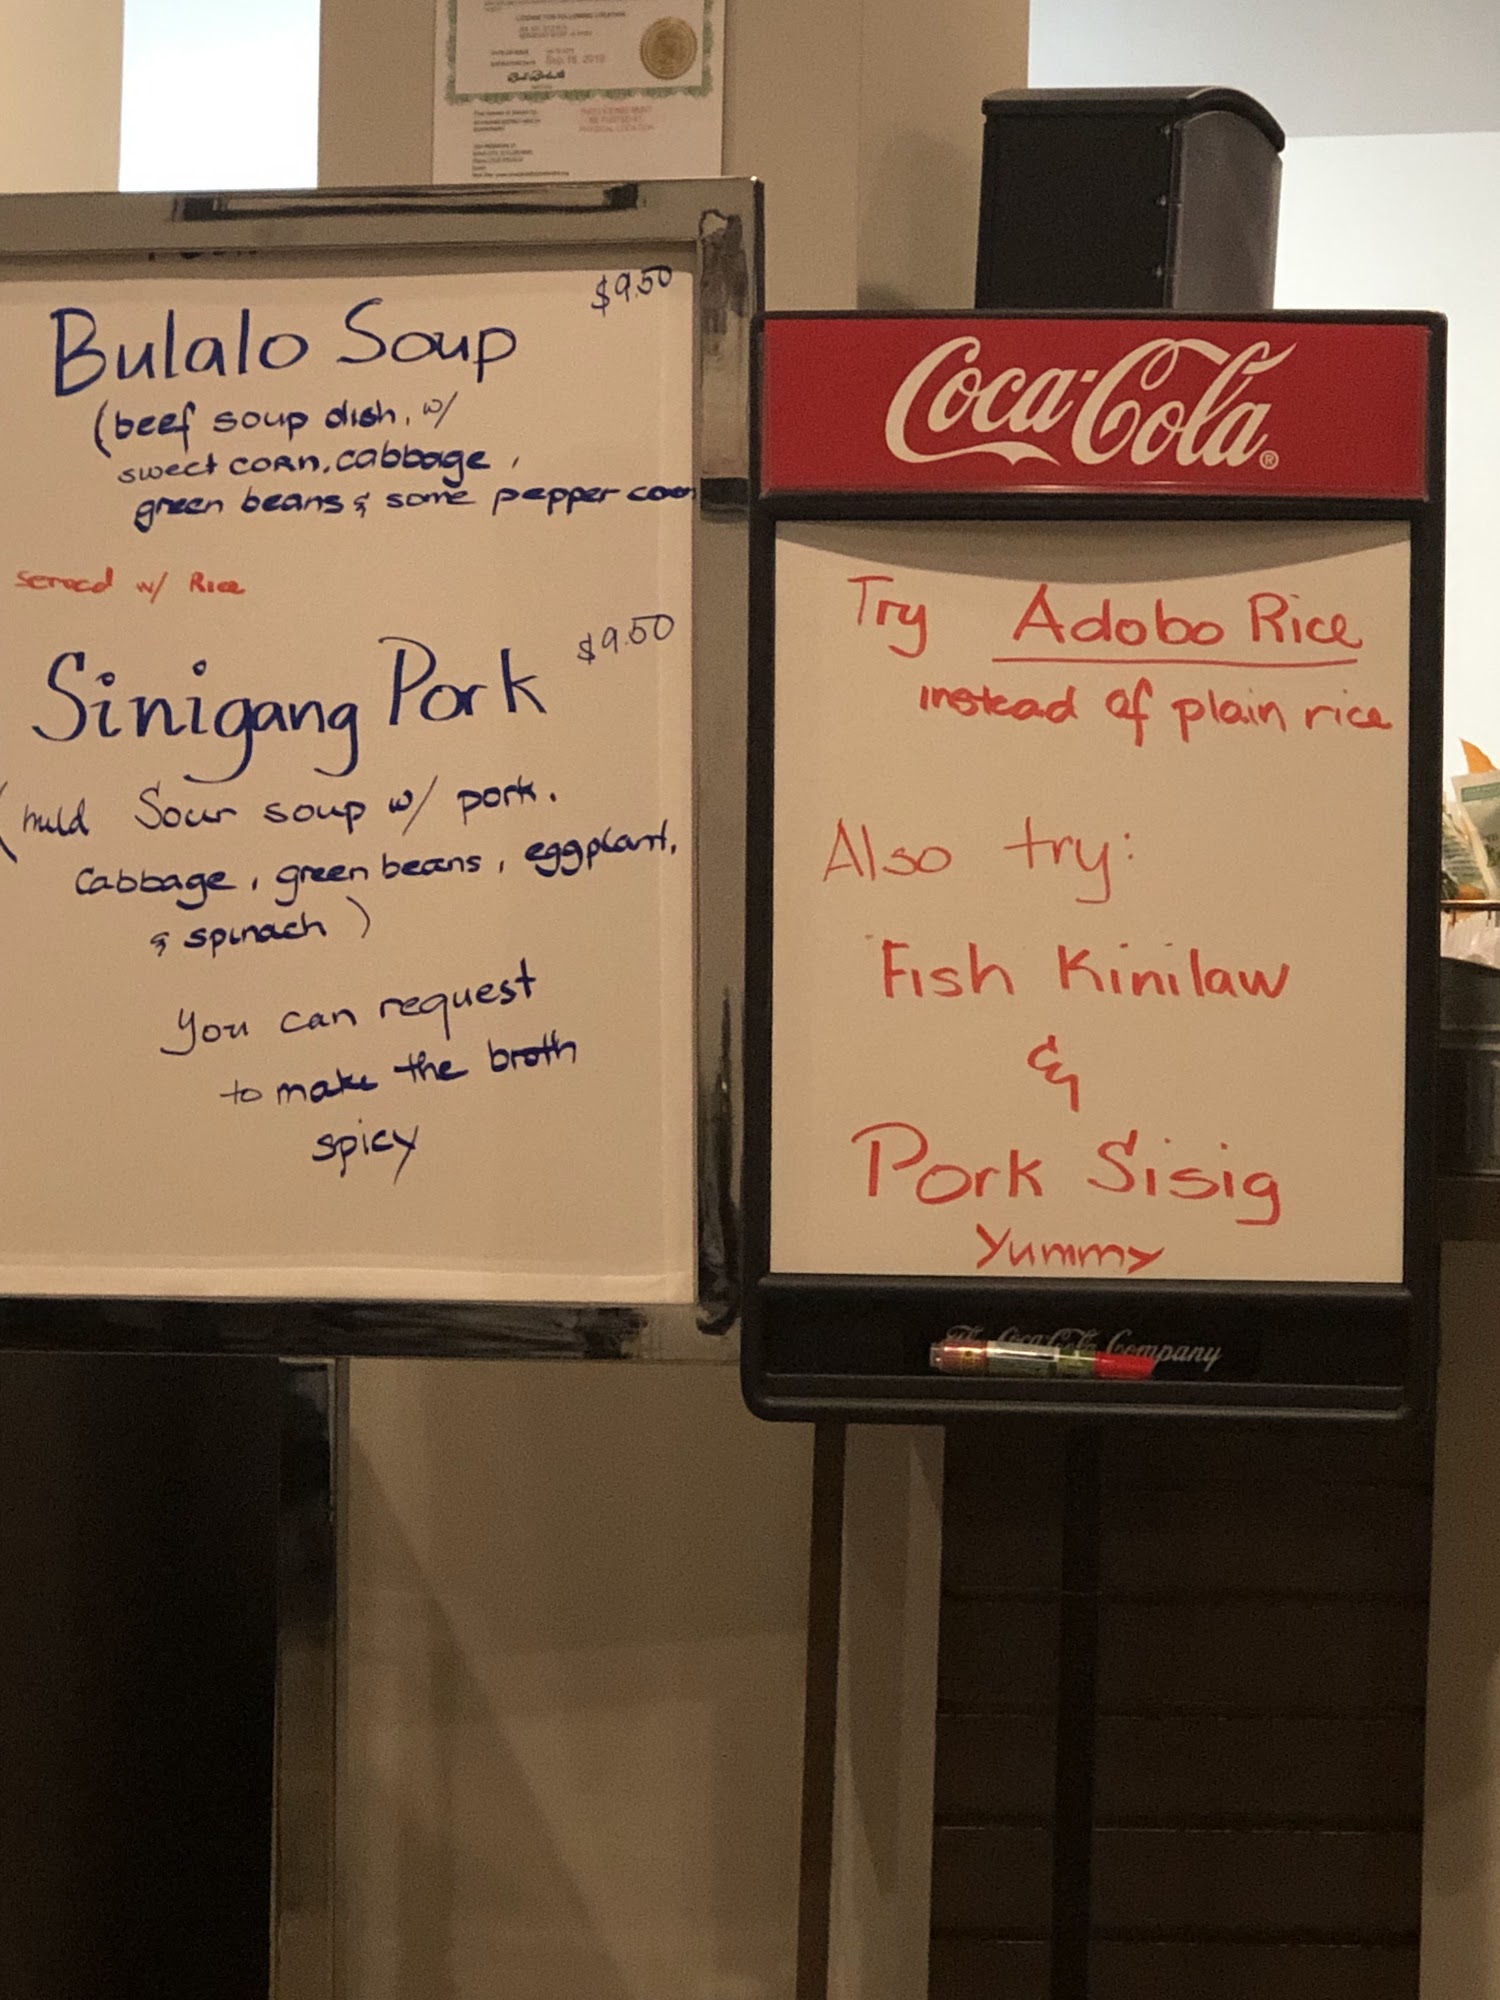 LICENSE FOR FOLLOWING LOCATION
Sep 18, 2019
PHYSICAL LOCATION
$9.50
Bulalo Soup
(beef soup dish, w/
sweet corn, cabbage,
green beans & some pepper corn
served w/ Rice
$9.50
Sinigang Pork
(mild Sour soup w/ pork.
cabbage, green beans, eggplant,
& spinach)
You can request
to make the broth
spicy
Coca-Cola®
Try Adobo Rice
instead of plain rice
Also try:
Fish Kinilaw
&
Pork Sisig
Yummy
The Coca-Cola Company